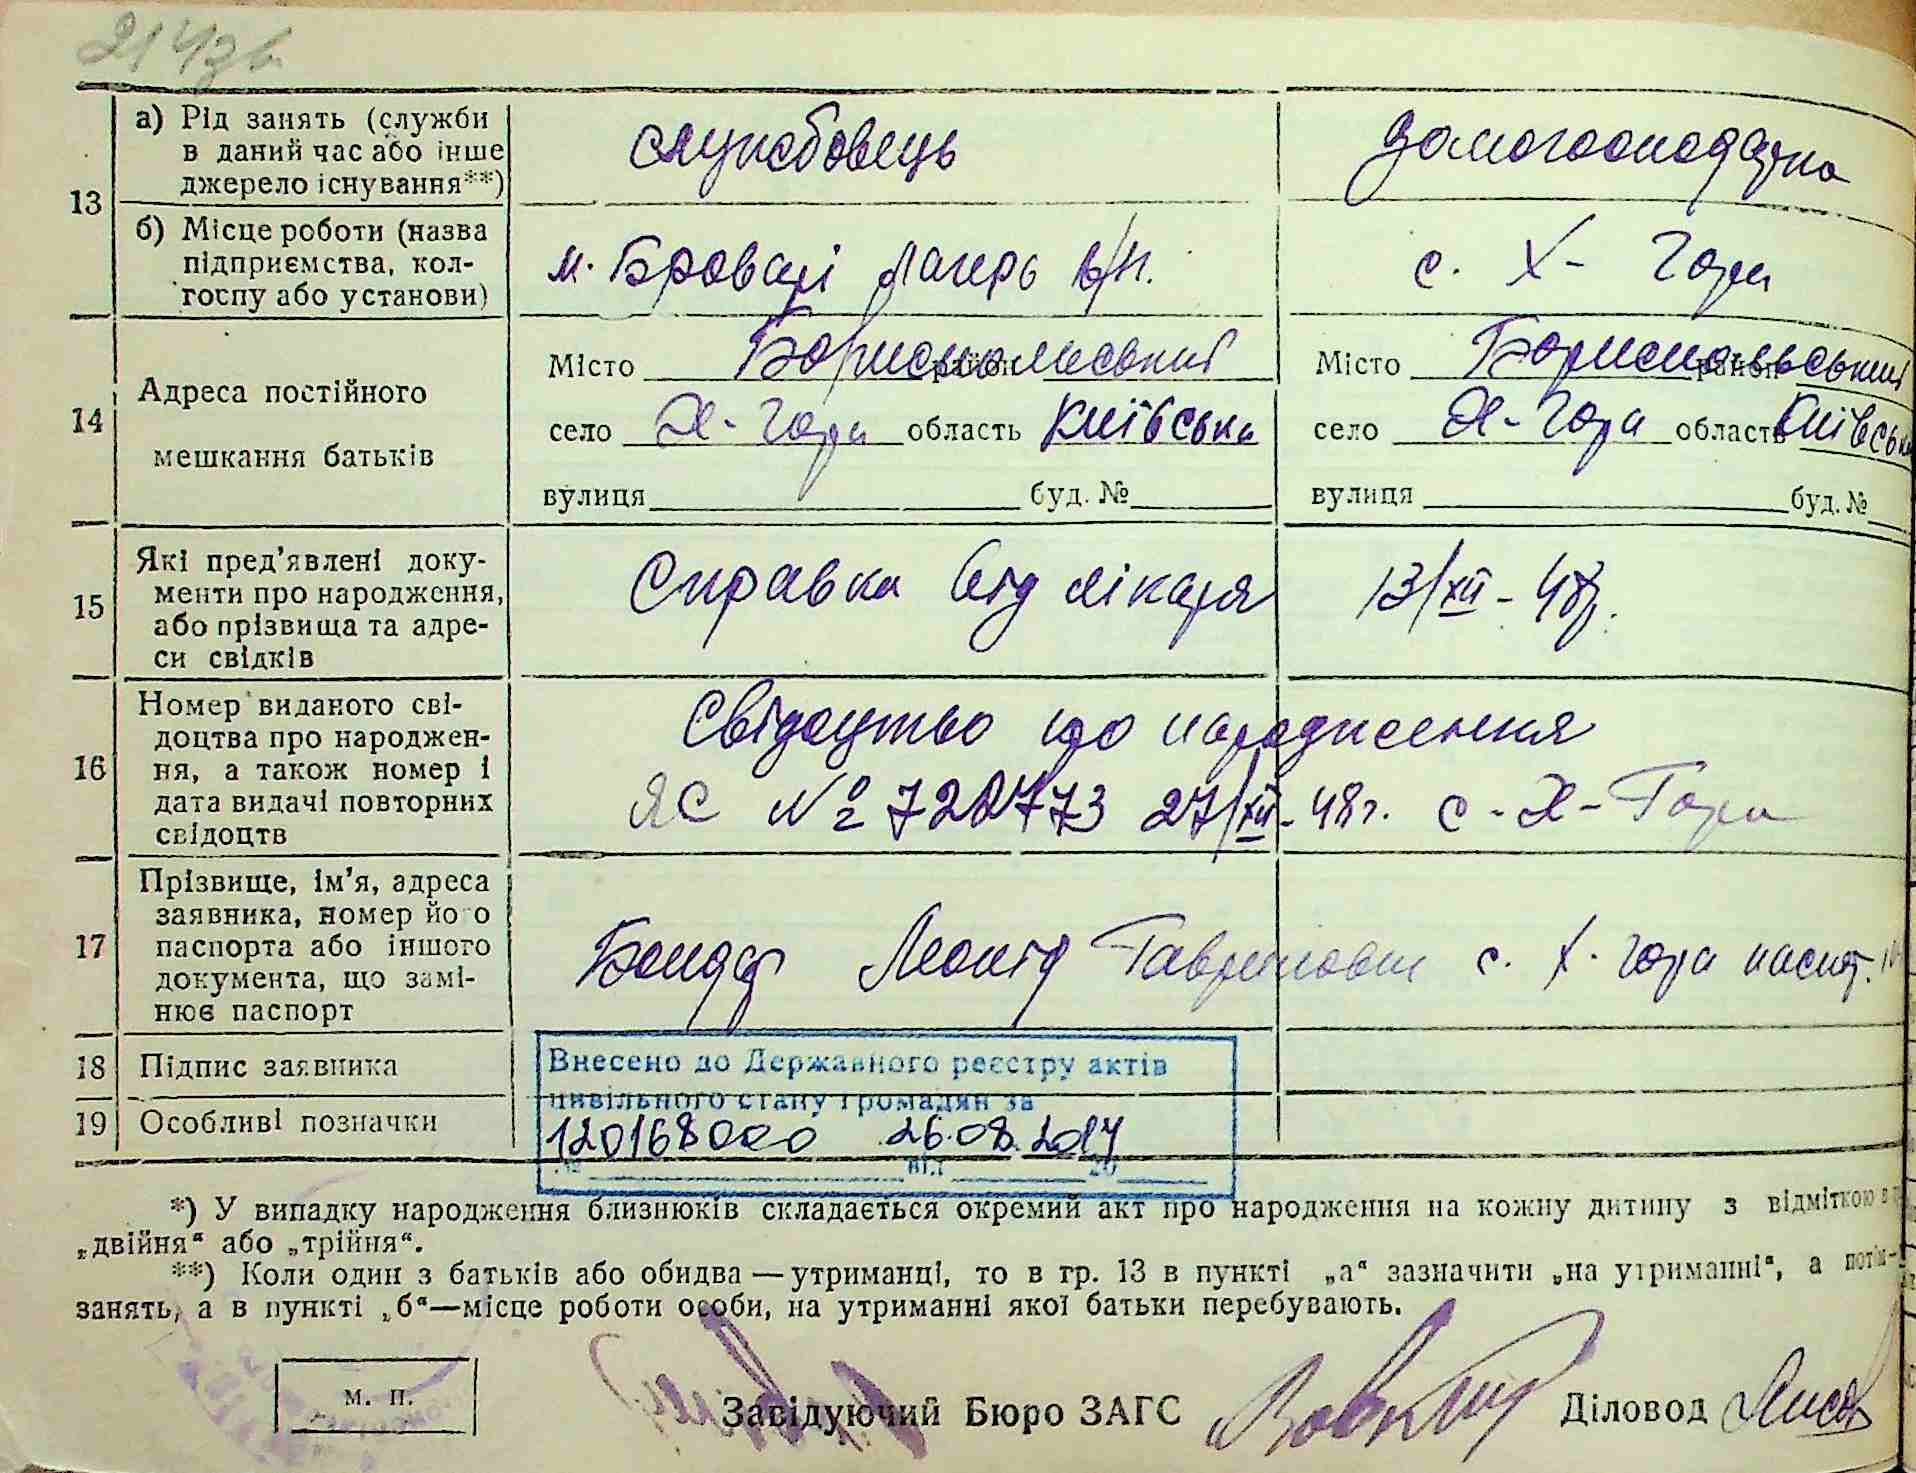 214зв.
13
а) Рід занять (служби
в даний час або інше
джерело існування**)
службовець
домогосподарка
б) Місце роботи (назва
підприємства, кол-
госпу або установи)
м. Бровари Лагерь в/п.
с. Х- Гора
14
Адреса постійного
мешкання батьків
Місто Бориспольський район
село Х- Гора область Київська
вулиця буд. №
Місто Бориспольський район
село Х- Гора область Київська
вулиця буд. №
15
Які пред'явлені доку-
менти про народження,
або прізвища та адре-
си свідків
Справка від лікаря 13/XII - 48р.
16
Номер виданого сві-
доцтва про народжен-
ня, а також номер і
дата видачі повторних
свідоцтв
Свідоцтво про народження
ЯС № 722773 27/XII - 48 г. с - Х - Гора
17
Прізвище, ім'я, адреса
заявника, номер його
паспорта або іншого
документа, що замі-
нює паспорт
Бондар Леонід Гаврилович с. Х. Гора паспорт.
18
Підпис заявника
19
Особливі позначки
Внесено до Державного реєстру актів
цивільного стану громадян за
120168000 26.08.2017
№ від 20
*) У випадку народження близнюків складається окремий акт про народження на кожну дитину з відміткою
„двійня“ або „трійня“.
**) Коли один з батьків або обидва — утриманці, то в гр. 13 в пункті „а“ зазначити „на утриманні“, а потім —
занять, а в пункті „б“ — місце роботи особи, на утриманні якої батьки перебувають.
М. П.
Завідуючий Бюро ЗАГС
Діловод